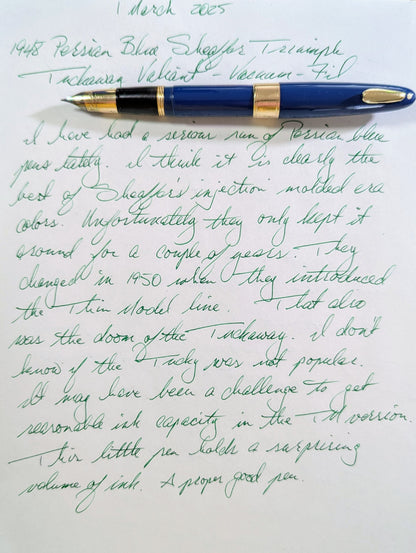 1 March 2025
1948 Persian Blue Sheaffer Triumph
Tuckaway Valiant - Vacuum-Fil
I have had a serious run of Persian blue
pens lately. I think it is clearly the
best of Sheaffers' injection molded era
colors. Unfortunately they only kept it
around for a couple of years. They
changed in 1950 when they introduced
the Thin Model line. That also
was the doom of the Tuckaway. I don't
know if the Tucky was not popular.
It may have been a challenge to get
reasonable ink capacity in the TM version.
This little pen holds a surprising
volume of ink. A proper good pen.